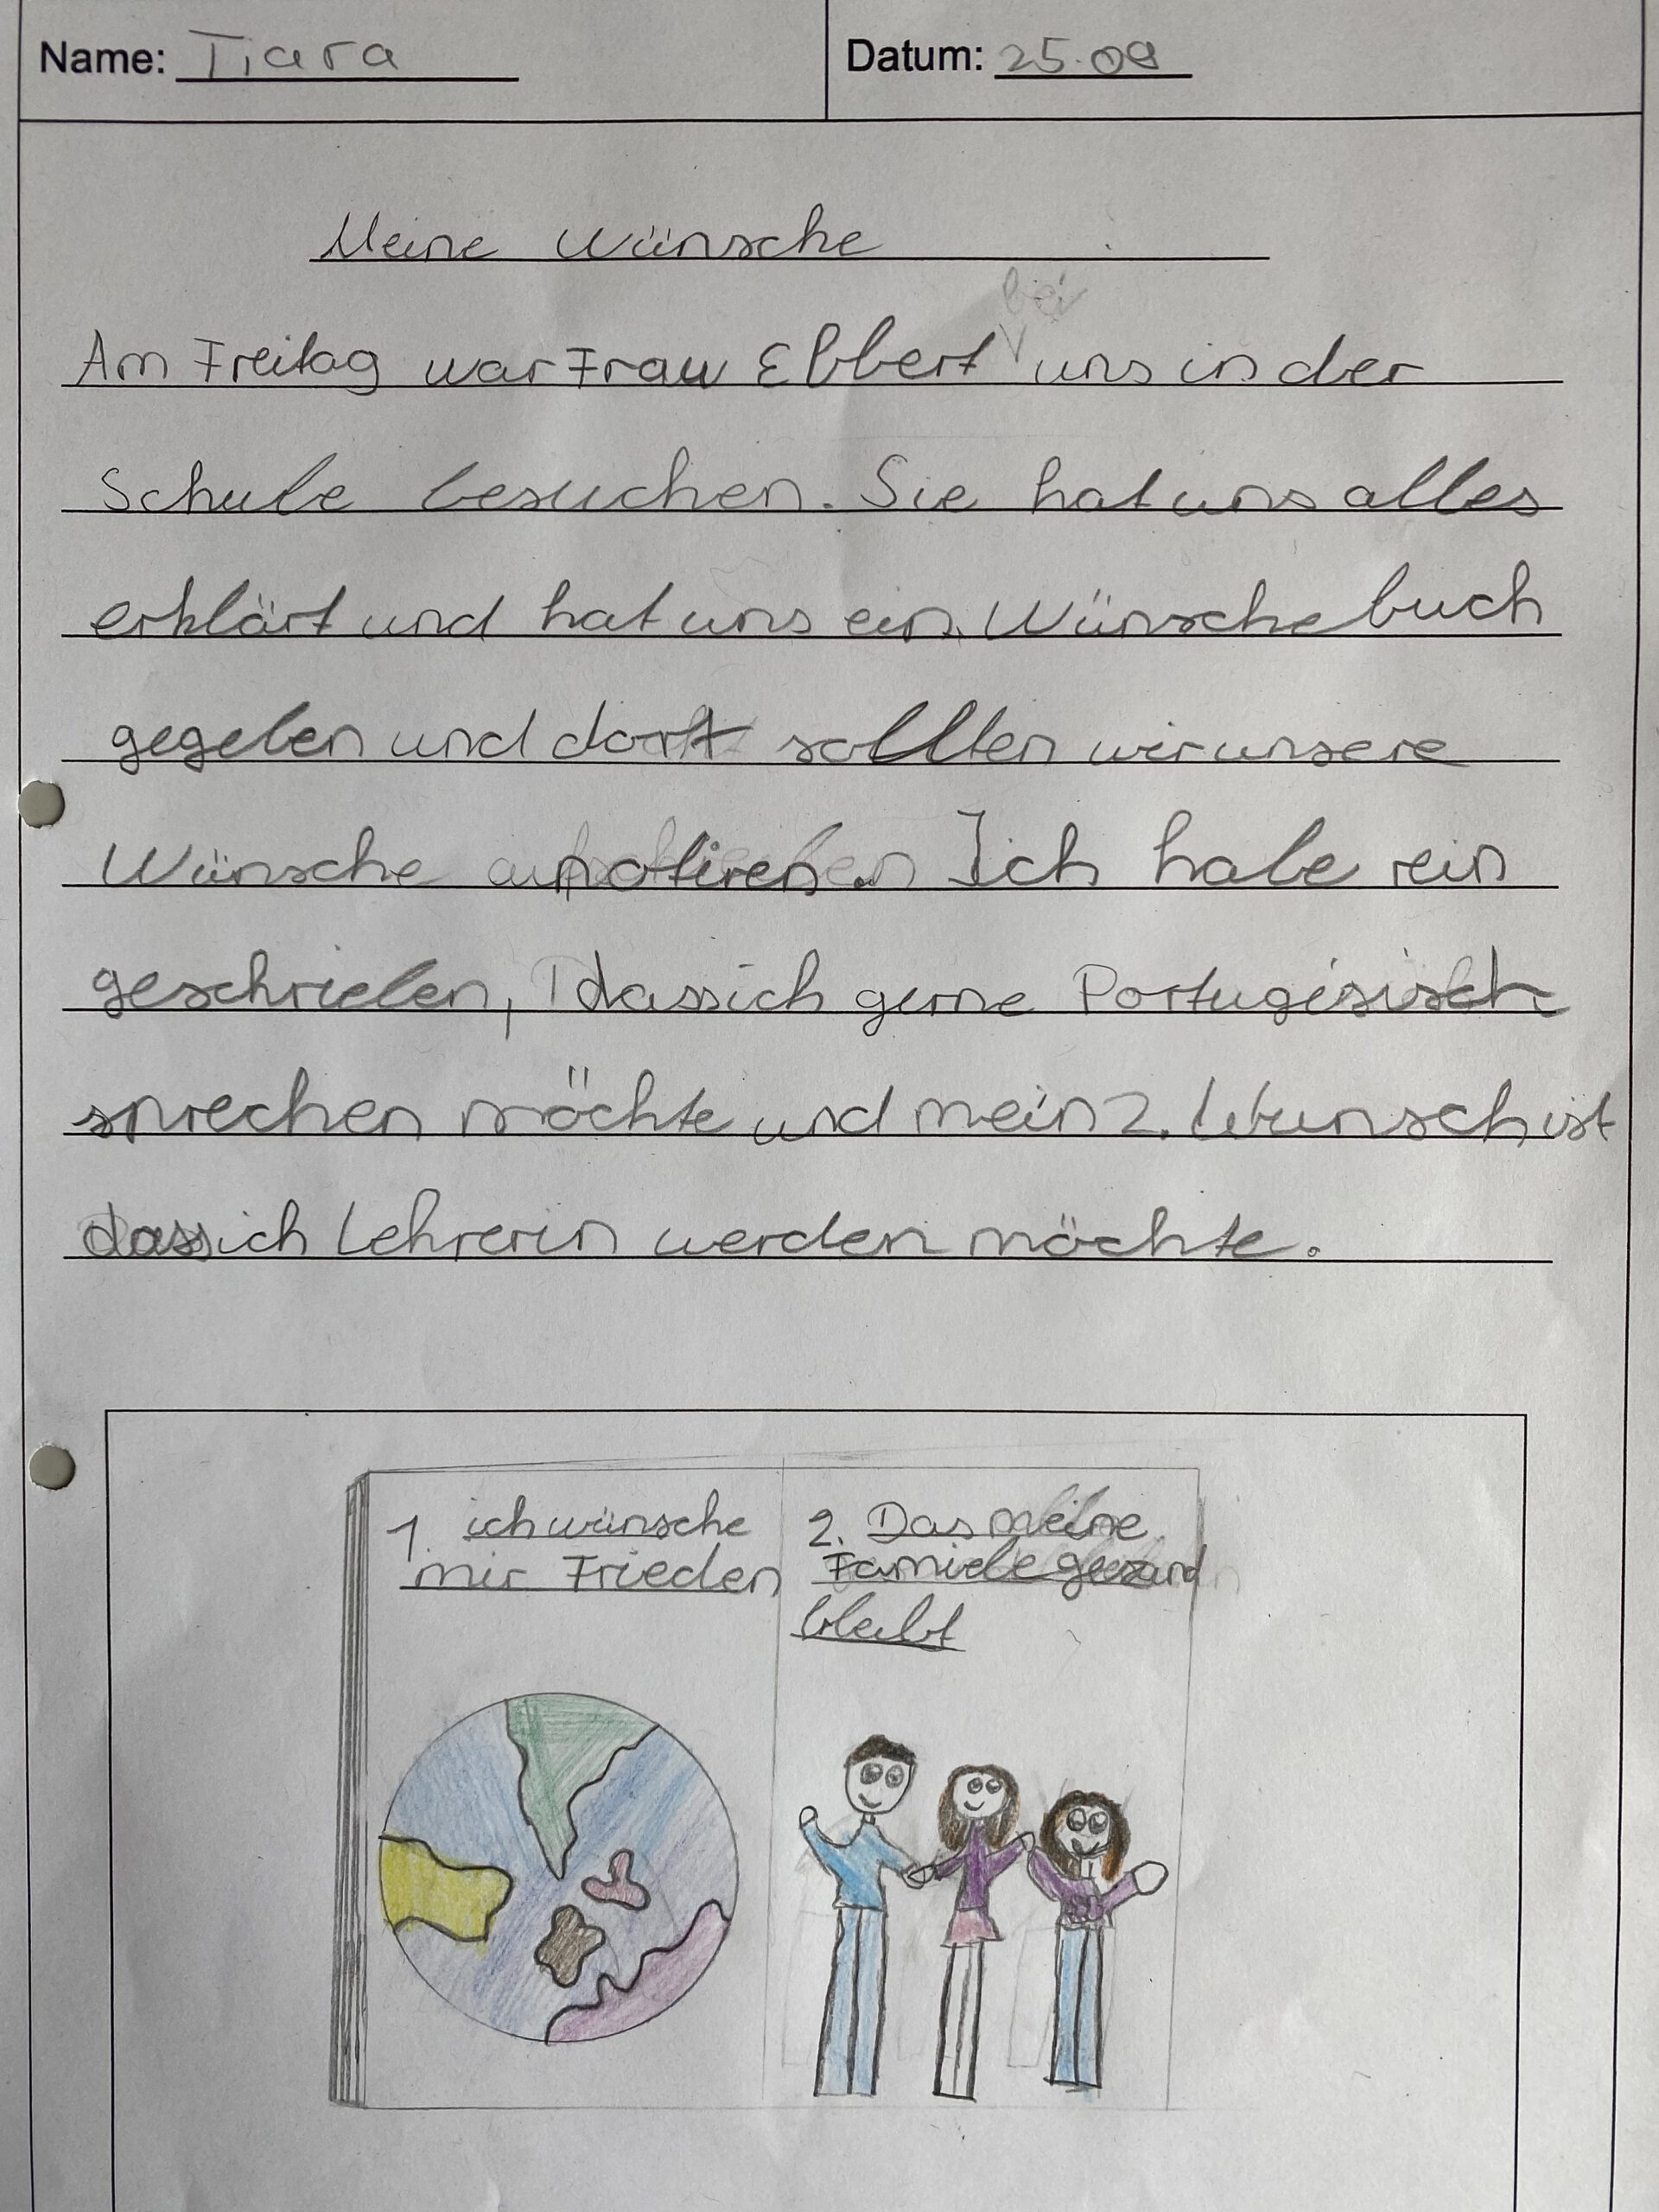 Name: Tiara
Datum: 25.09
Meine Wünsche
bei
Am Freitag war Frau Ebbert uns in der
Schule besuchen. Sie hat uns alles
erklärt und hat uns ein Wünschebuch
gegeben und dort sollten wir unsere
Wünsche notiren. Ich habe rein
geschrieben, dass ich gerne Portugisisch
sprechen möchte und mein 2. Wunsch ist
dass ich Lehrerin werden möchte.
1. ich wünsche
mir Frieden
2. Das meine
Famiele gesund
bleibt